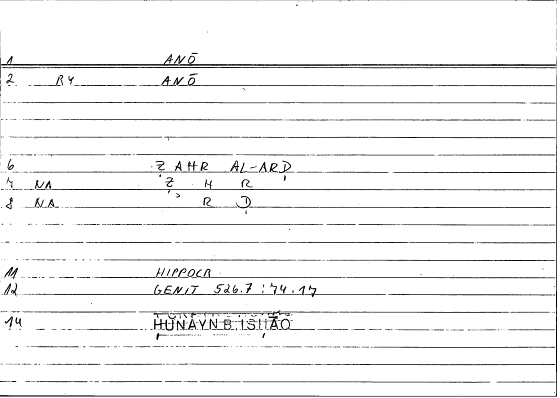 1 ANŌ
2 RY ANŌ
6 ẒAHR AL-ARḌ
7 NA Ẓ H R
8 NA R Ḍ
11 HIPPOCR
12 GENIT 526.7 : 74.17
14 ḤUNAYN B. ISḤĀQ